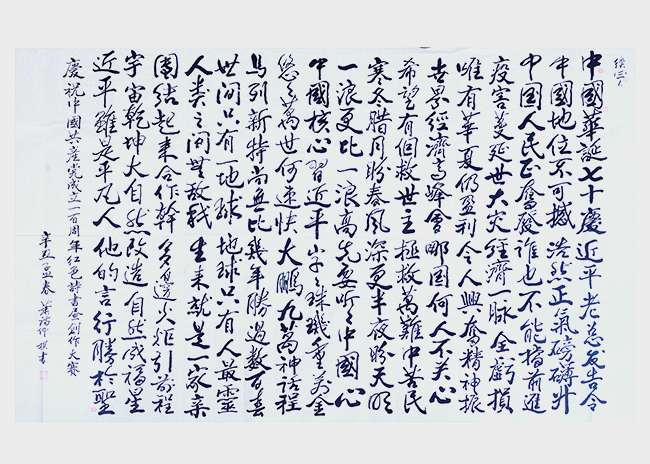 中國華誕七十慶近平老总发告令
中國地位不可撼浩然正氣磅礴升
中国人民正奮發谁也不能擋前進
疫害蔓延世大灾經濟一脉金虧損
唯有華夏仍盈利令人興奮精神振
世界經濟高峰會哪国何人不关心
希望有個救世主拯救萬難中苦民
寒冬腊月盼春風深更半夜盼天明
一浪更比一浪高先要听々中國心
中國核心習近平字々珠璣重万金
悠々萬世何速快大鵬九萬神話程
馬列新特尚無比幾年勝過数百春
世间只有一地球地球只有人最靈
人类之间無敵我生来就是一家亲
團结起来合作幹道火炬引前程
宇宙乾坤大自然改造自然成福星
近平雖是平凡人他的言行勝於聖
慶祝中國共産党成立一百周年紅色詩書畫創作大賽
辛丑孟春 書